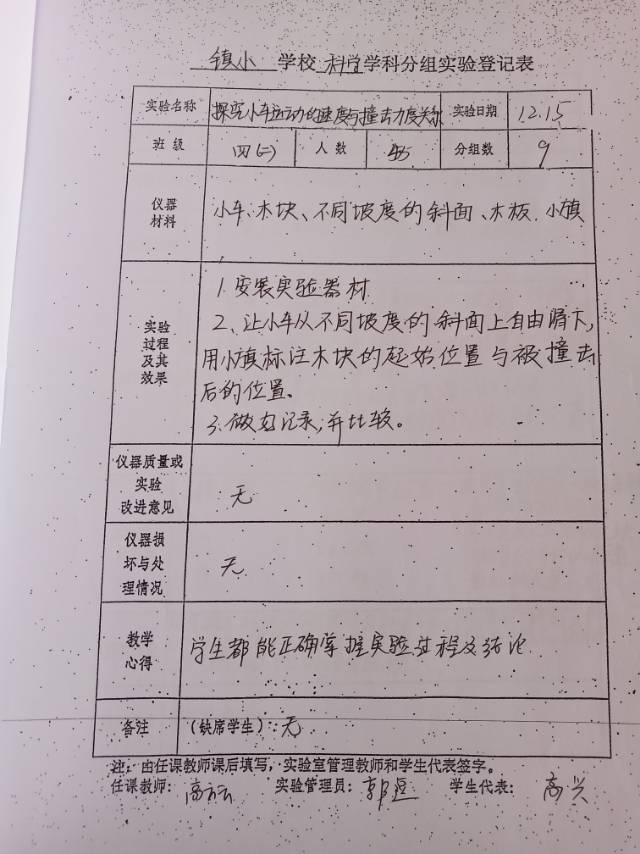 镇小 学校 科学 学科分组实验登记表
实验名称 探究小车运动的速度与撞击力度关系 实验日期 12.15
班 级 四(二) 人 数 45 分组数 9
仪器
材料
小车、木块、不同坡度的斜面、木板.小旗
实验
过程
及其
效果
1.安装实验器材
2、让小车从不同坡度的斜面上自由滑下,
用小旗标注木块的起始位置与被撞击
后的位置。
3.做好记录,并比较。
仪器质量或
实验
改进意见
无
仪器损
坏与处
理情况
无
教学
心得
学生都能正确掌握实验过程及结论
备注 (缺席学生):无
注:由任课教师课后填写,实验室管理教师和学生代表签字。
任课教师: 高 实验管理员: 郭 学生代表: 高兴